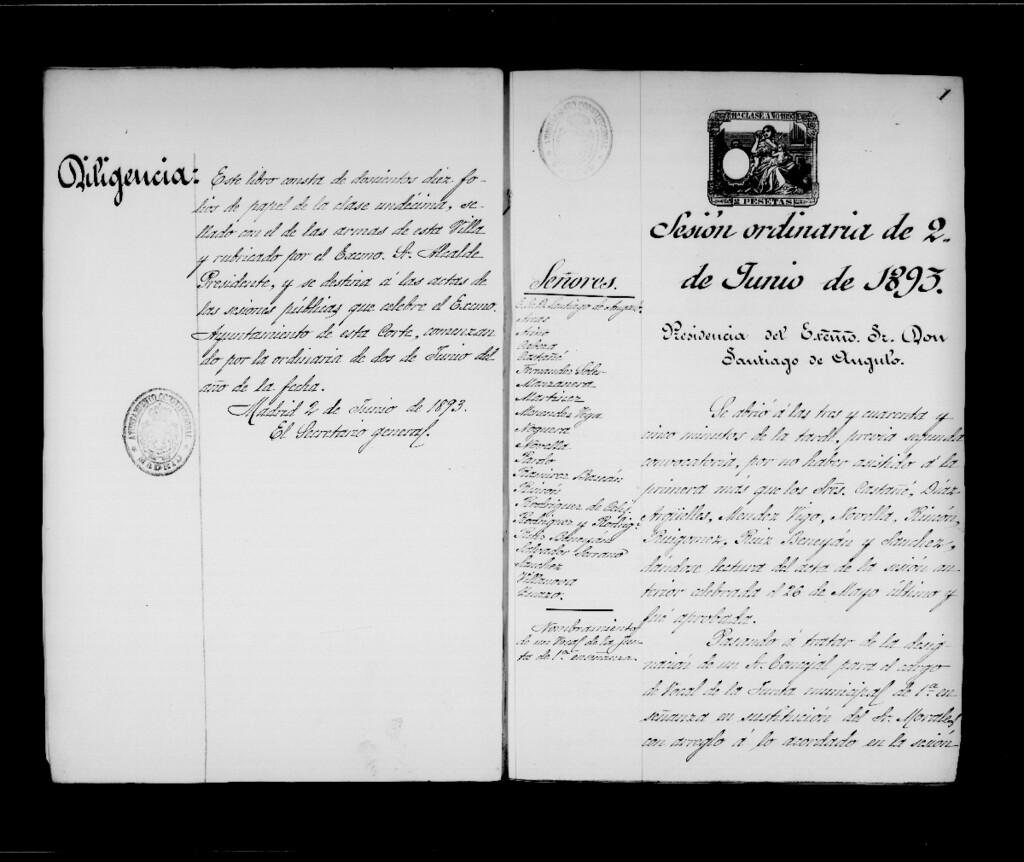 Diligencia:
Este libro consta de doscientos diez fo-
lios de papel de la clase undécima, se-
llado con el de las armas de esta Villa
y rubricado por el Excmo. Sr. Alcalde
Presidente, y se destina á las actas de
las sesiones públicas que celebre el Excmo.
Ayuntamiento de esta Corte, comenzan
do por la ordinaria de dos de Junio del
año de la fecha.
Madrid 2 de Junio de 1893.
El Secretario general.
AYUNTAMIENTO CONSTITUCIONAL
MADRID
1
AYUNTAMIENTO CONSTITUCIONAL
11ª CLASE AÑO 1893
PESETAS
Sesión ordinaria de 2.
de Junio de 1893.
Presidencia del Excmo. Sr. Don
Santiago de Angulo.
Señores.
Santiago de Angulo
Arias
Cabeza
Castañé
Fernandez Soler
Manzanera
Martinez
Menendez Vega
Noguera
Novella
Pardo
Ramirez Bascán
Rincón
Rodriguez de Celis
Rodriguez y Rodrig.
Ruiz Beneyán
Salvador Serrano
Sanchez
Villanova
Nombramiento
de un Vocal de la Jun-
ta de 1ª enseñanza.
Se abrió á las tres y cuarenta y
cinco minutos de la tarde, previa segunda
convocatoria, por no haber asistido á la
primera más que los Sres. Castañé, Diaz
Argüelles, Mendez Vigo, Novella, Rincón,
Ruigomez, Ruiz Beneyan y Sanchez,
dándose lectura del acta de la sesión an-
terior celebrada el 26 de Mayo último y
fué aprobada.
Pasando á tratar de la desig-
nación de un Sr. Concejal para el cargo
de Vocal de la Junta municipal de 1ª en-
señanza en sustitución del Sr. Morales,
con arreglo á lo acordado en la sesión